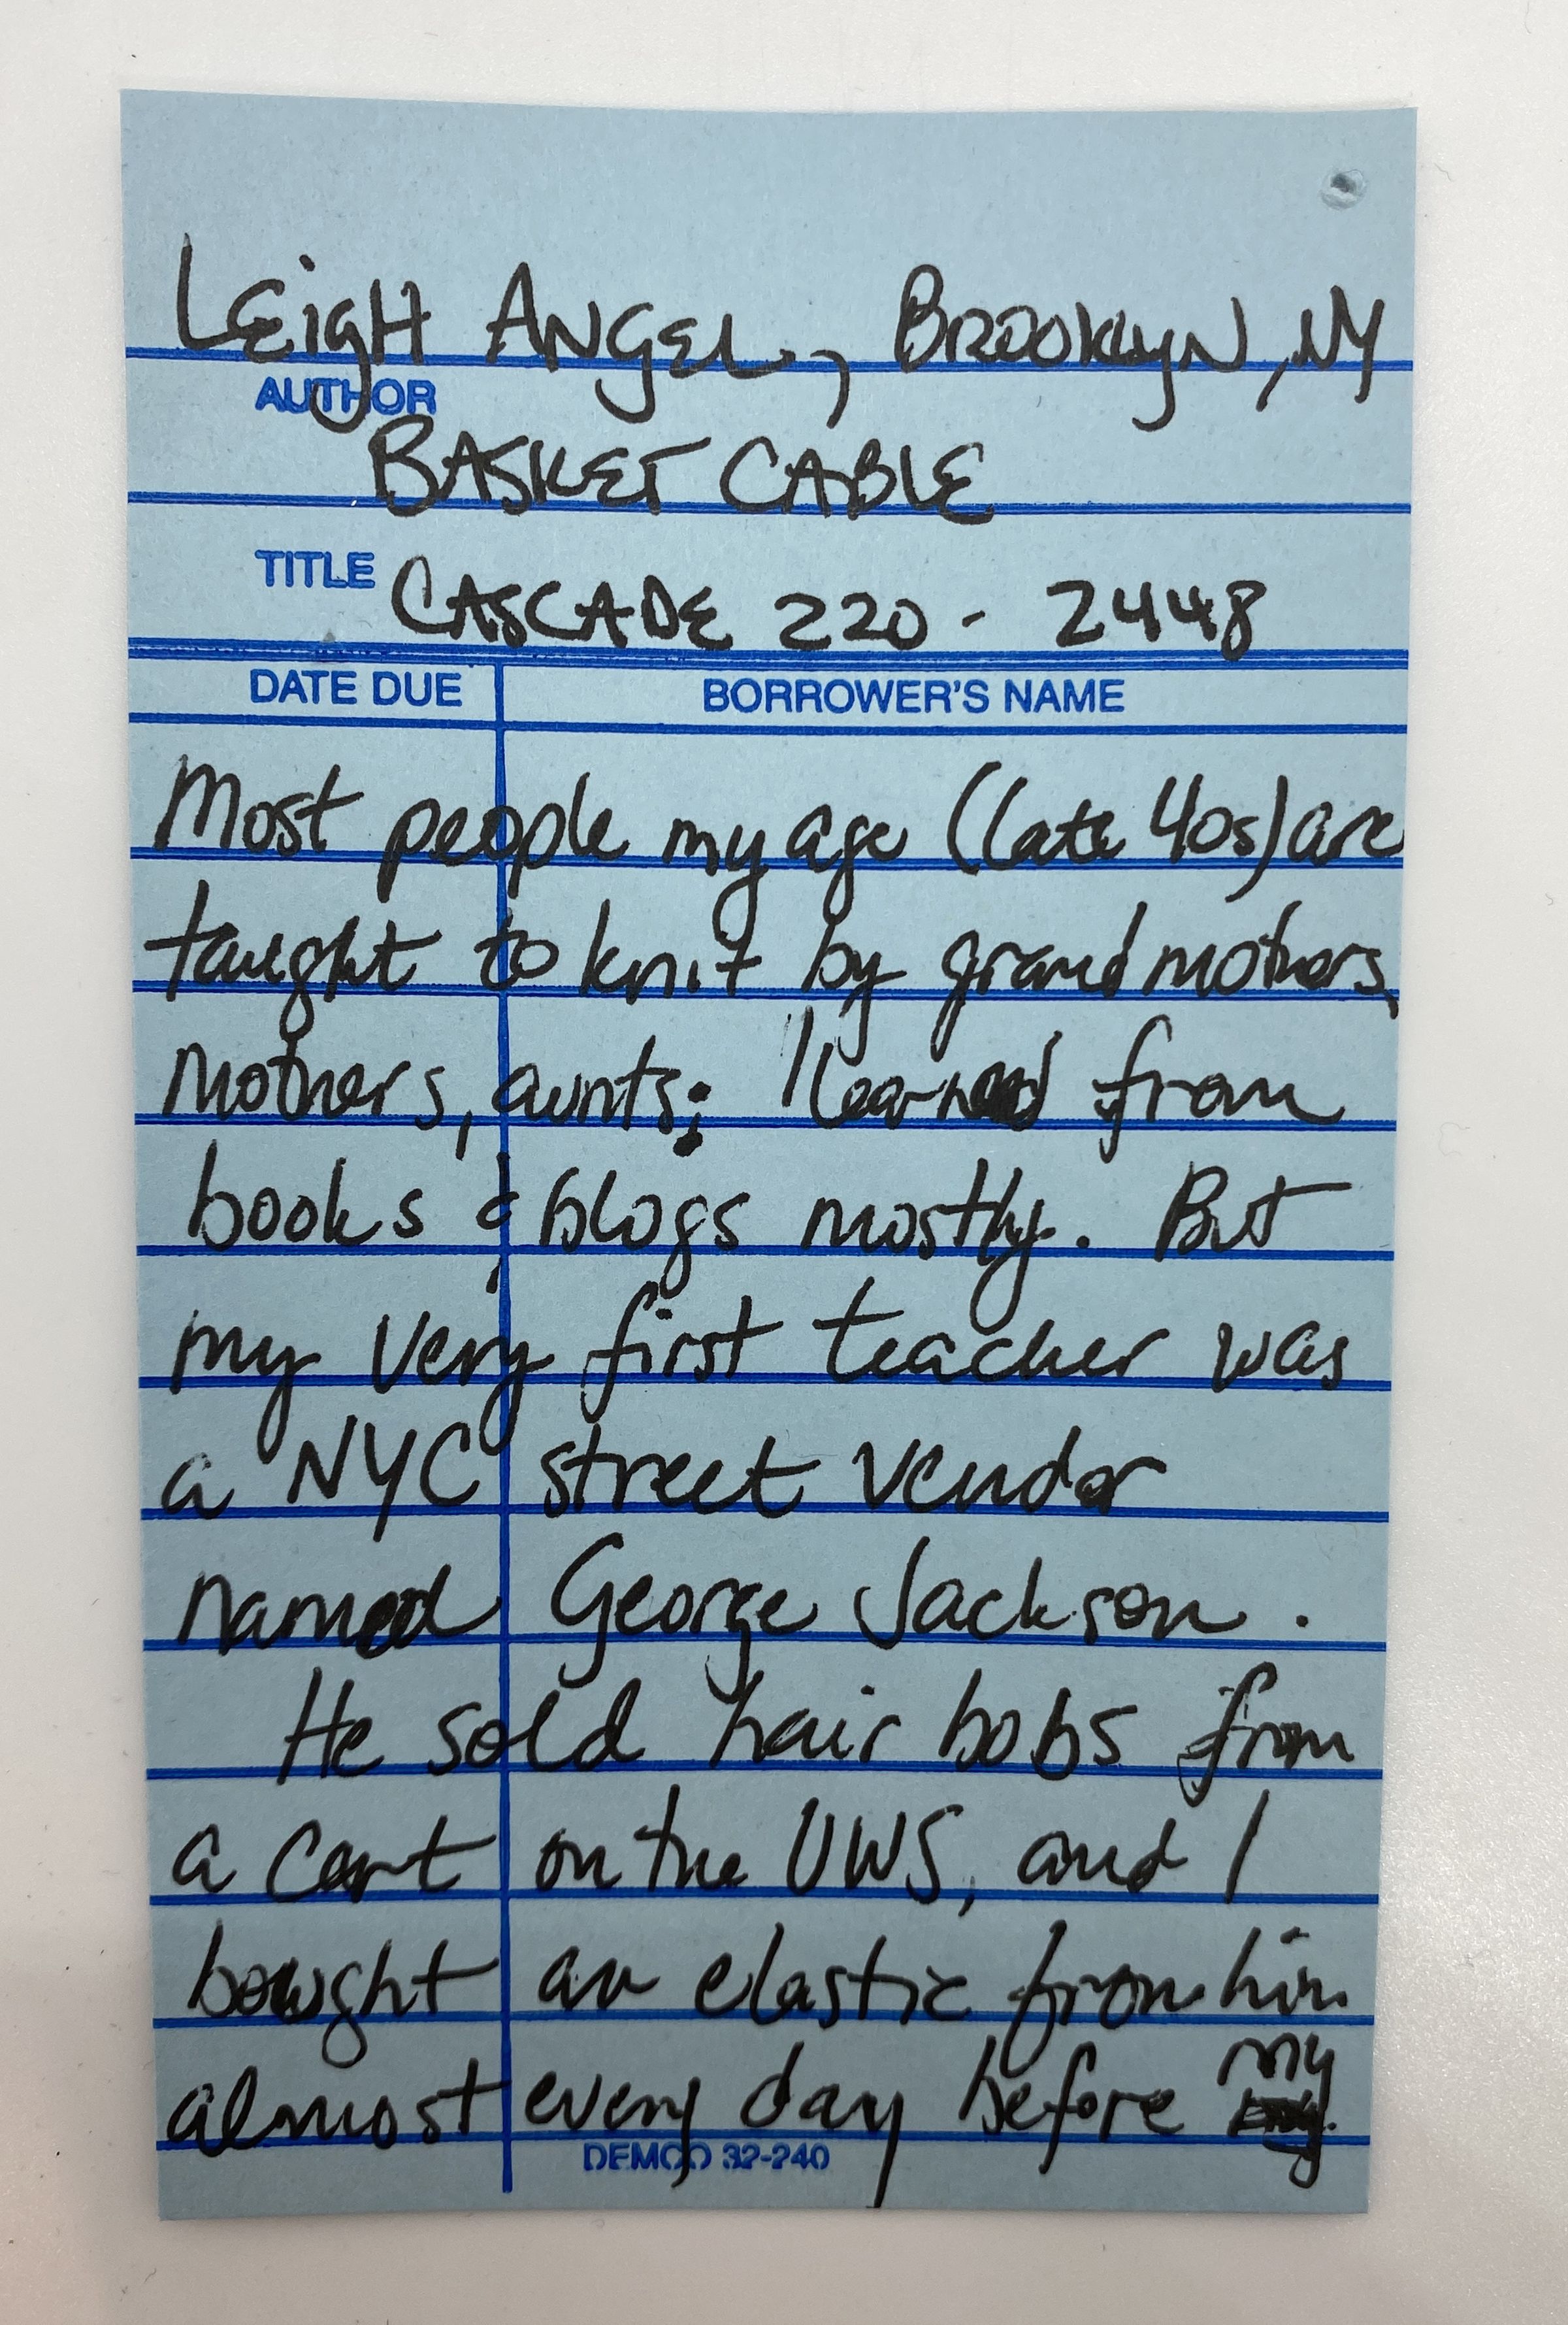 LEigH ANgEL, BROOKlyN, NY
AUTHOR
BASKET CABLE
TITLE CASCADE 220 - 2448
DATE DUE BORROWER'S NAME
Most people my age (late 40s) are
taught to knit by grandmothers,
mothers, aunts; I learned from
books & blogs mostly. But
my very first teacher was
a NYC street vendor
named George Jackson.
He sold hair bobs from
a cart on the UWS, and I
bought an elastic from him
almost every day before my
DEMCO 32-240